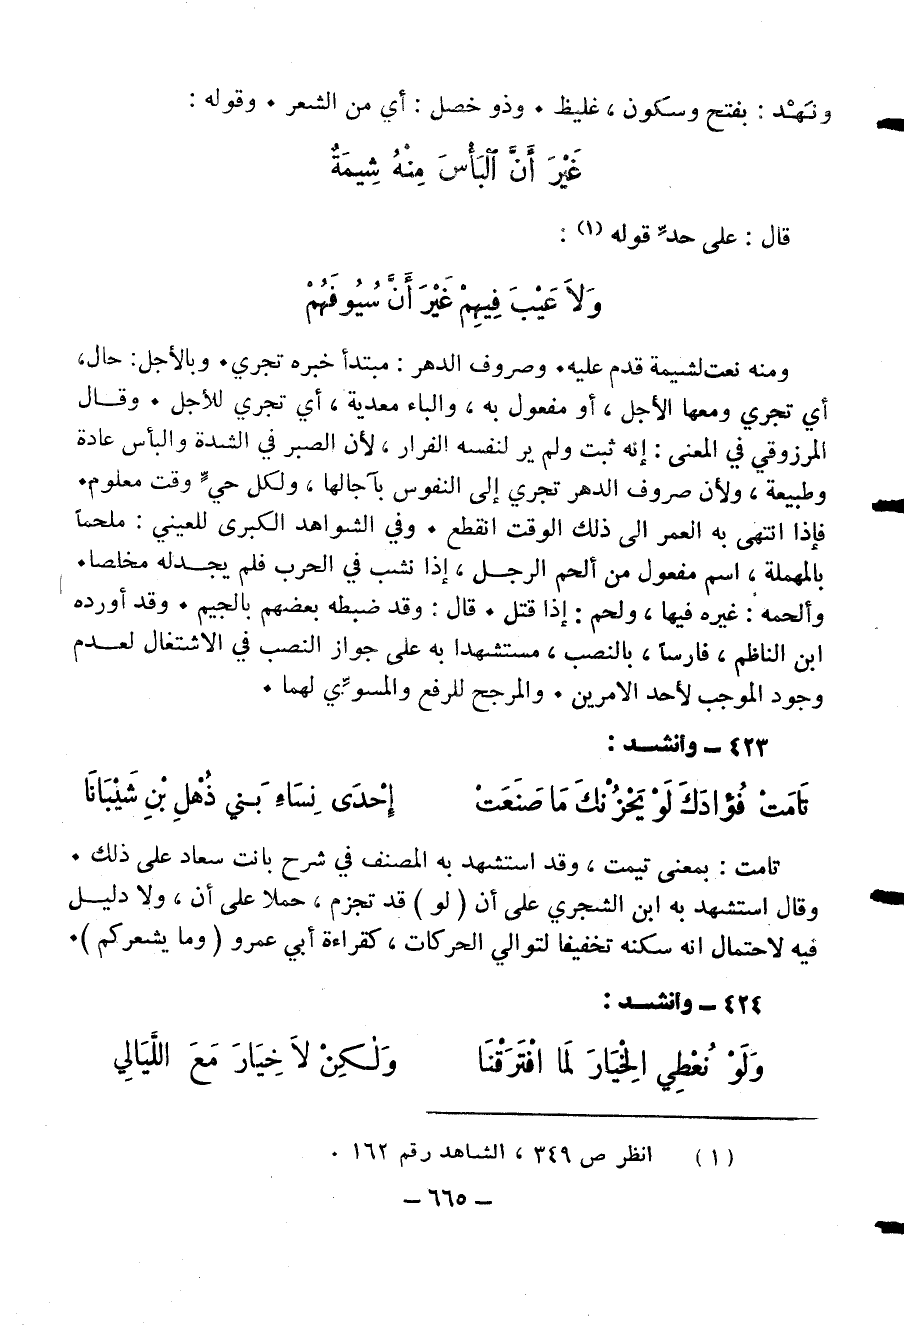 ونَهْد : بفتح وسكون ، غليظ . وذو خصل : أي من الشعر . وقوله :
غَيْرَ أَنَّ ٱلبَأْسَ مِنْهُ شِيمَةٌ
قال : على حدّ قوله (١) :
وَلاَ عَيْبَ فِيهِمْ غَيْرَ أَنَّ سُيُوفَهُمْ
ومنه نعت لشيمة قدم عليه . وصروف الدهر : مبتدأ خبره تجري . وبالأجل : حال ،
أي تجري ومعها الأجل ، أو مفعول به ، والباء معدية ، أي تجري للأجل . وقـال
المرزوقي في المعنى : إنه ثبت ولم ير لنفسه الفرار ، لأن الصبر في الشدة والبأس عادة
وطبيعة ، ولأن صروف الدهر تجري إلى النفوس بآجالها ، ولكل حيّ وقت معلوم .
فإذا انتهى به العمر الى ذلك الوقت انقطع . وفي الشواهد الكبرى للعيني : ملحماً
بالمهملة ، اسم مفعول من ألحم الرجـل ، إذا نشب في الحرب فلم يجـدله مخلصا .
وألحمه : غيره فيها ، ولحم : إذا قتل . قال : وقد ضبطه بعضهم بالجيم . وقد أورده
ابن الناظم ، فارساً ، بالنصب ، مستشهدا به على جواز النصب في الاشتغال لعـدم
وجود الموجب لأحد الامرين . والمرجح للرفع والمسوّي لهما .
٤٢٣ ـ وأنشـد :
تَامَتْ فُؤَادَكَ لَوْ يَحْزُنْكَ مَا صَنَعَتْ إِحْدَى نِسَاءِ بَنِي ذُهْلِ بْنِ شَيْبَانَا
تامت : بمعنى تيمت ، وقد استشهد به المصنف في شرح بانت سعاد على ذلك .
وقال استشهد به ابن الشجري على أن ( لو ) قد تجزم ، حملا على أن ، ولا دليـل
فيه لاحتمال انه سكنه تخفيفا لتوالي الحركات ، كقراءة أبي عمرو ( وما يشعركم ) .
٤٢٤ ـ وأنشـد :
وَلَوْ نُعْطِي الخِيَارَ لَمَا افْتَرَقْنَا وَلٰـكِنْ لاَ خِيَارَ مَعَ اللَّيَالِي
(١) انظر ص ٣٤٩ ، الشاهد رقم ١٦٢ .
ـ ٦٦٥ ـ